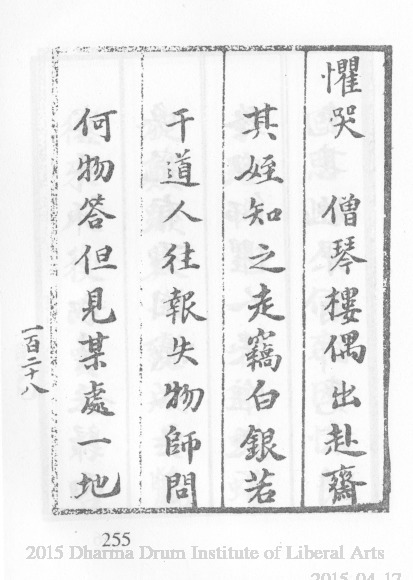 懼哭　僧琴樓偶出赴齋
其姪知之走竊白銀若
干道人往報失物師問
何物答但見某處一地
一百二十八
255
2015 Dharma Drum Institute of Liberal Arts
2015-04-17